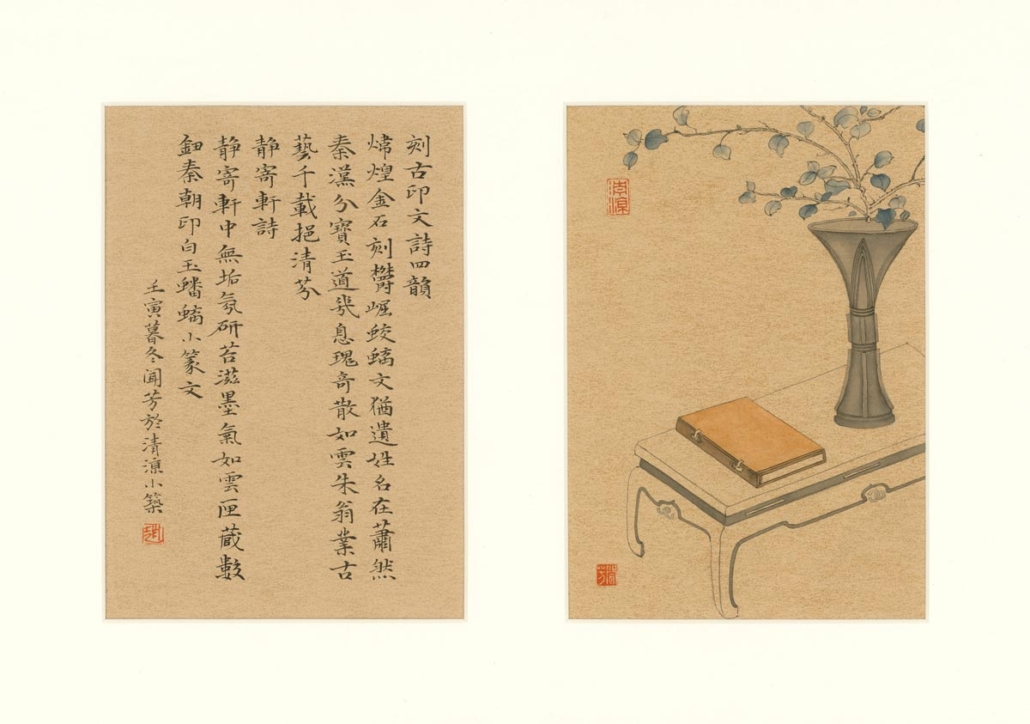 刻古印文詩四韻
煒煌金石刻欝崛蛟螭文猶遺姓名在蕭然
秦漢分寶玉道喪息瑰奇散如雲朱翁業古
藝千載挹清芬
静寄軒詩
静寄軒中無垢氛研苔滋墨氣如雲匣蔵數
鈕秦朝印白玉蟠螭小篆文
壬寅暮冬聞芳於清涼小築
清涼
聞芳